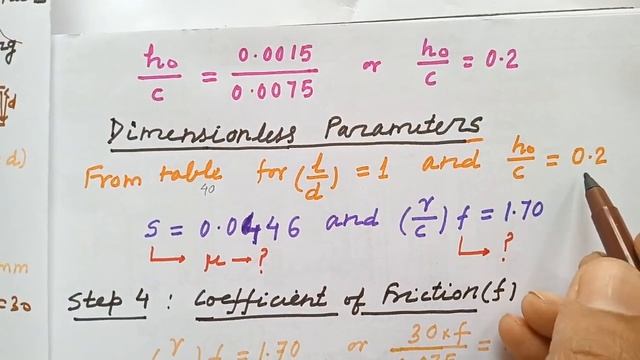 ho/c = 0.0015/0.0075 or ho/c = 0.2
Dimensionless Parameters
d)
From table 40 for (l/d) = 1 and ho/c = 0.2
S = 0.0446 and (r/c) f = 1.70
μ → ? ?
mm
=30
Step 4 : Coefficient of Friction (f)
(r/c) f = 1.70 or 30×f/0.075 =